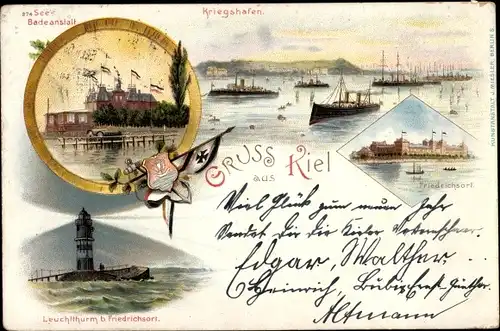 974 See-
Badeanstalt
Kriegshafen.
GRUSS
aus Kiel
Friedrichsort.
Viel Glück zum neuen Jahr
Sendet Dir die Kieler
Edgar, Walther
Heinrich, Bubi Ernst Günther
Altmann
Leuchtthurm b. Friedrichsort.